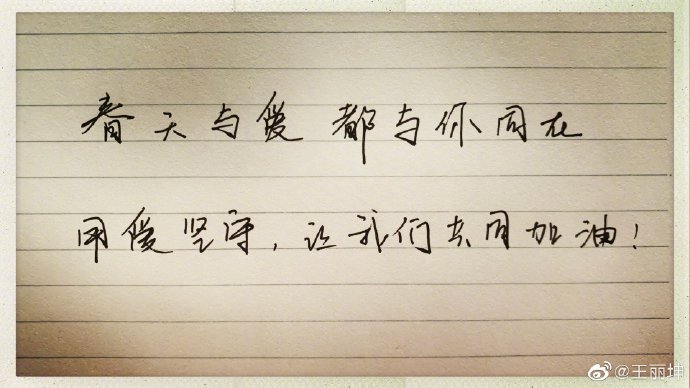 春天与爱 都与你同在
用爱坚守，让我们共同加油！
@王丽坤